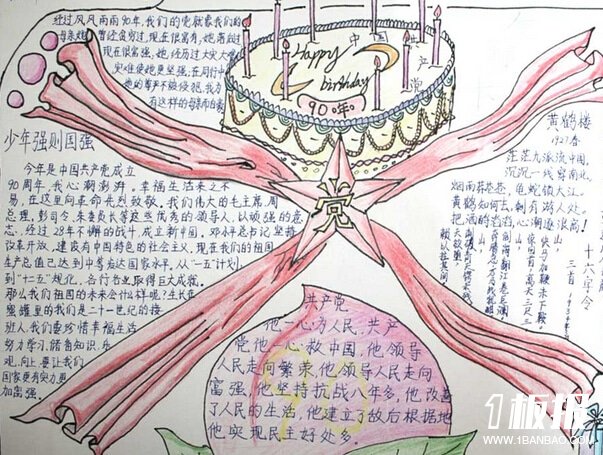 经过风风雨雨90年,我们的党就象我们的
母亲
现在很富强,她经历过大灾大难
灾难使她更坚强,在同行中
有这样的母亲而
Happy
birthday
90年
中国共产党
少年强则国强
今年是中国共产党成立
90周年,我心潮澎湃。幸福生活来之不
易,在这里向革命先烈致敬。我们伟大的毛主席,周
总理,彭司令,朱委员长等这些优秀的领导人,以顽强的意
志,经过28年不懈的战斗,成立新中国。邓小平总书记坚持
改革开放,建设有中国特色的社会主义,现在我们的祖国
生产总值已达到中等发达国家水平,从“一五”计划
到“十二五”规化,各行各业取得巨大成就。
那么我们祖国的未来会什么样呢?生长在
蜜罐里的我们是二十一世纪的接
班人,我们要珍惜幸福生活
努力学习,储备知识,乐
观,向上,要让我们
国家更有实力更
加富强。
党
黄鹤楼
1927春
茫茫九派流中国,
沉沉一线穿南北,
烟雨莽苍苍,龟蛇锁大江。
黄鹤知何去,剩有游人处。
把酒酹滔滔,心潮逐浪高!
十六字令
三首
山,
快马加鞭未下鞍。
离天三尺三
山,
山,
刺破青天锷未残。
天欲堕,
赖以拄其间。
共产党
他一心为人民,共产
党他一心救中国,他领导
人民走向繁荣,他领导人民走向
富强,他坚持抗战八年多,他改善
了人民的生活,他建立了敌后根据地
他实现民主好处多。
1板报
WWW.1BANBAO.COM